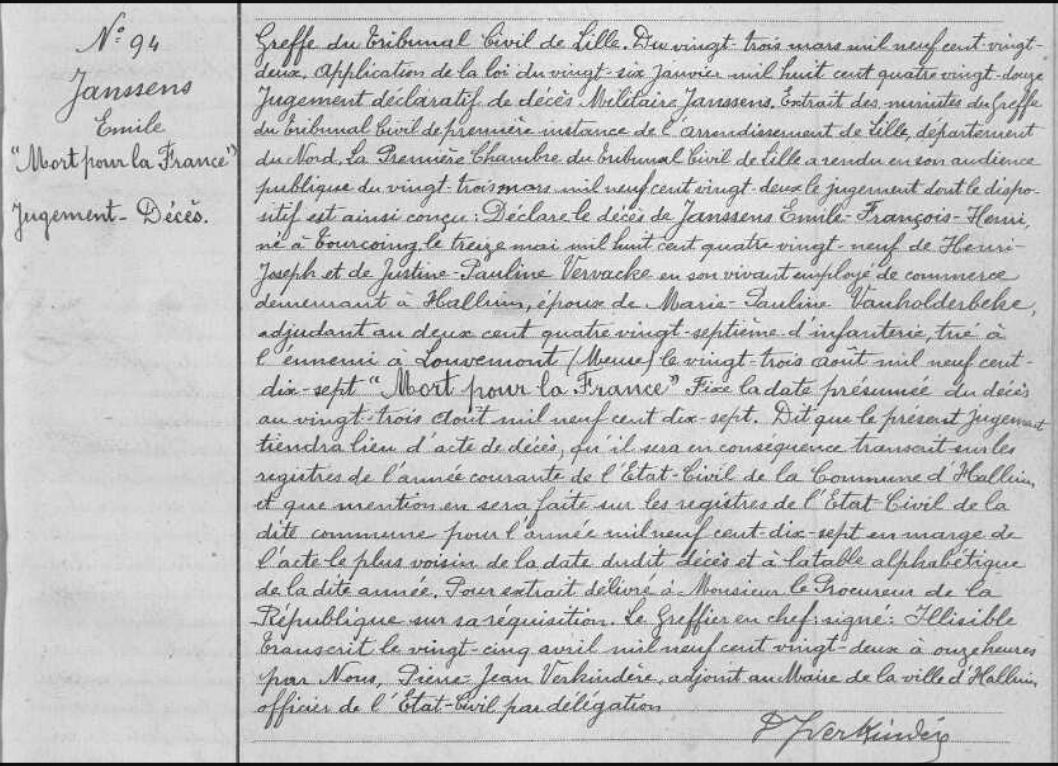 N° 94
Janssens
Emile
"Mort pour la France"
Jugement - Décès.
Greffe du Tribunal Civil de Lille. Du vingt-trois mars mil neuf cent-vingt-
deux, application de la loi du vingt-six Janvier mil huit cent quatre vingt-douze
Jugement déclaratif de décès Militaire Janssens. Extrait des minutes du Greffe
du Tribunal Civil de première instance de l'arrondissement de Lille, département
du Nord. La Première Chambre du Tribunal Civil de Lille a rendu en son audience
publique du vingt-trois mars mil neuf cent vingt-deux le jugement dont le dispo-
sitif est ainsi conçu: Déclare le décès de Janssens Emile-François-Henri,
né à Tourcoing le treize mai mil huit cent quatre vingt-neuf de Henri-
Joseph et de Justine-Pauline Vervacke en son vivant employé de commerce
demeurant à Halluin, époux de Marie-Pauline Vanholderbeke,
adjudant au deux cent quatre vingt-septième d'infanterie, tué à
l'ennemi à Louvemont (Meuse) le vingt-trois août mil neuf cent-
dix-sept "Mort pour la France" Fixe la date présumée du décès
au vingt-trois Août mil neuf cent dix-sept. Dit que le présent Jugement
tiendra lieu d'acte de décès, qu'il sera en conséquence transcrit sur les
registres de l'année courante de l'Etat-Civil de la Commune d'Halluin,
et que mention en sera faite sur les registres de l'Etat-Civil de la
dite commune pour l'année mil neuf cent-dix-sept en marge de
l'acte le plus voisin de la date dudit décès et à la table alphabétique
de la dite année. Pour extrait délivré à Monsieur le Procureur de la
République sur sa réquisition. Le Greffier en chef: signé: Illisible
Transcrit le vingt-cinq avril mil neuf cent vingt-deux à onze heures
par Nous, Pierre-Jean Verkindère, adjoint au Maire de la ville d'Halluin,
officier de l'Etat-Civil par délégation
P J Verkindère